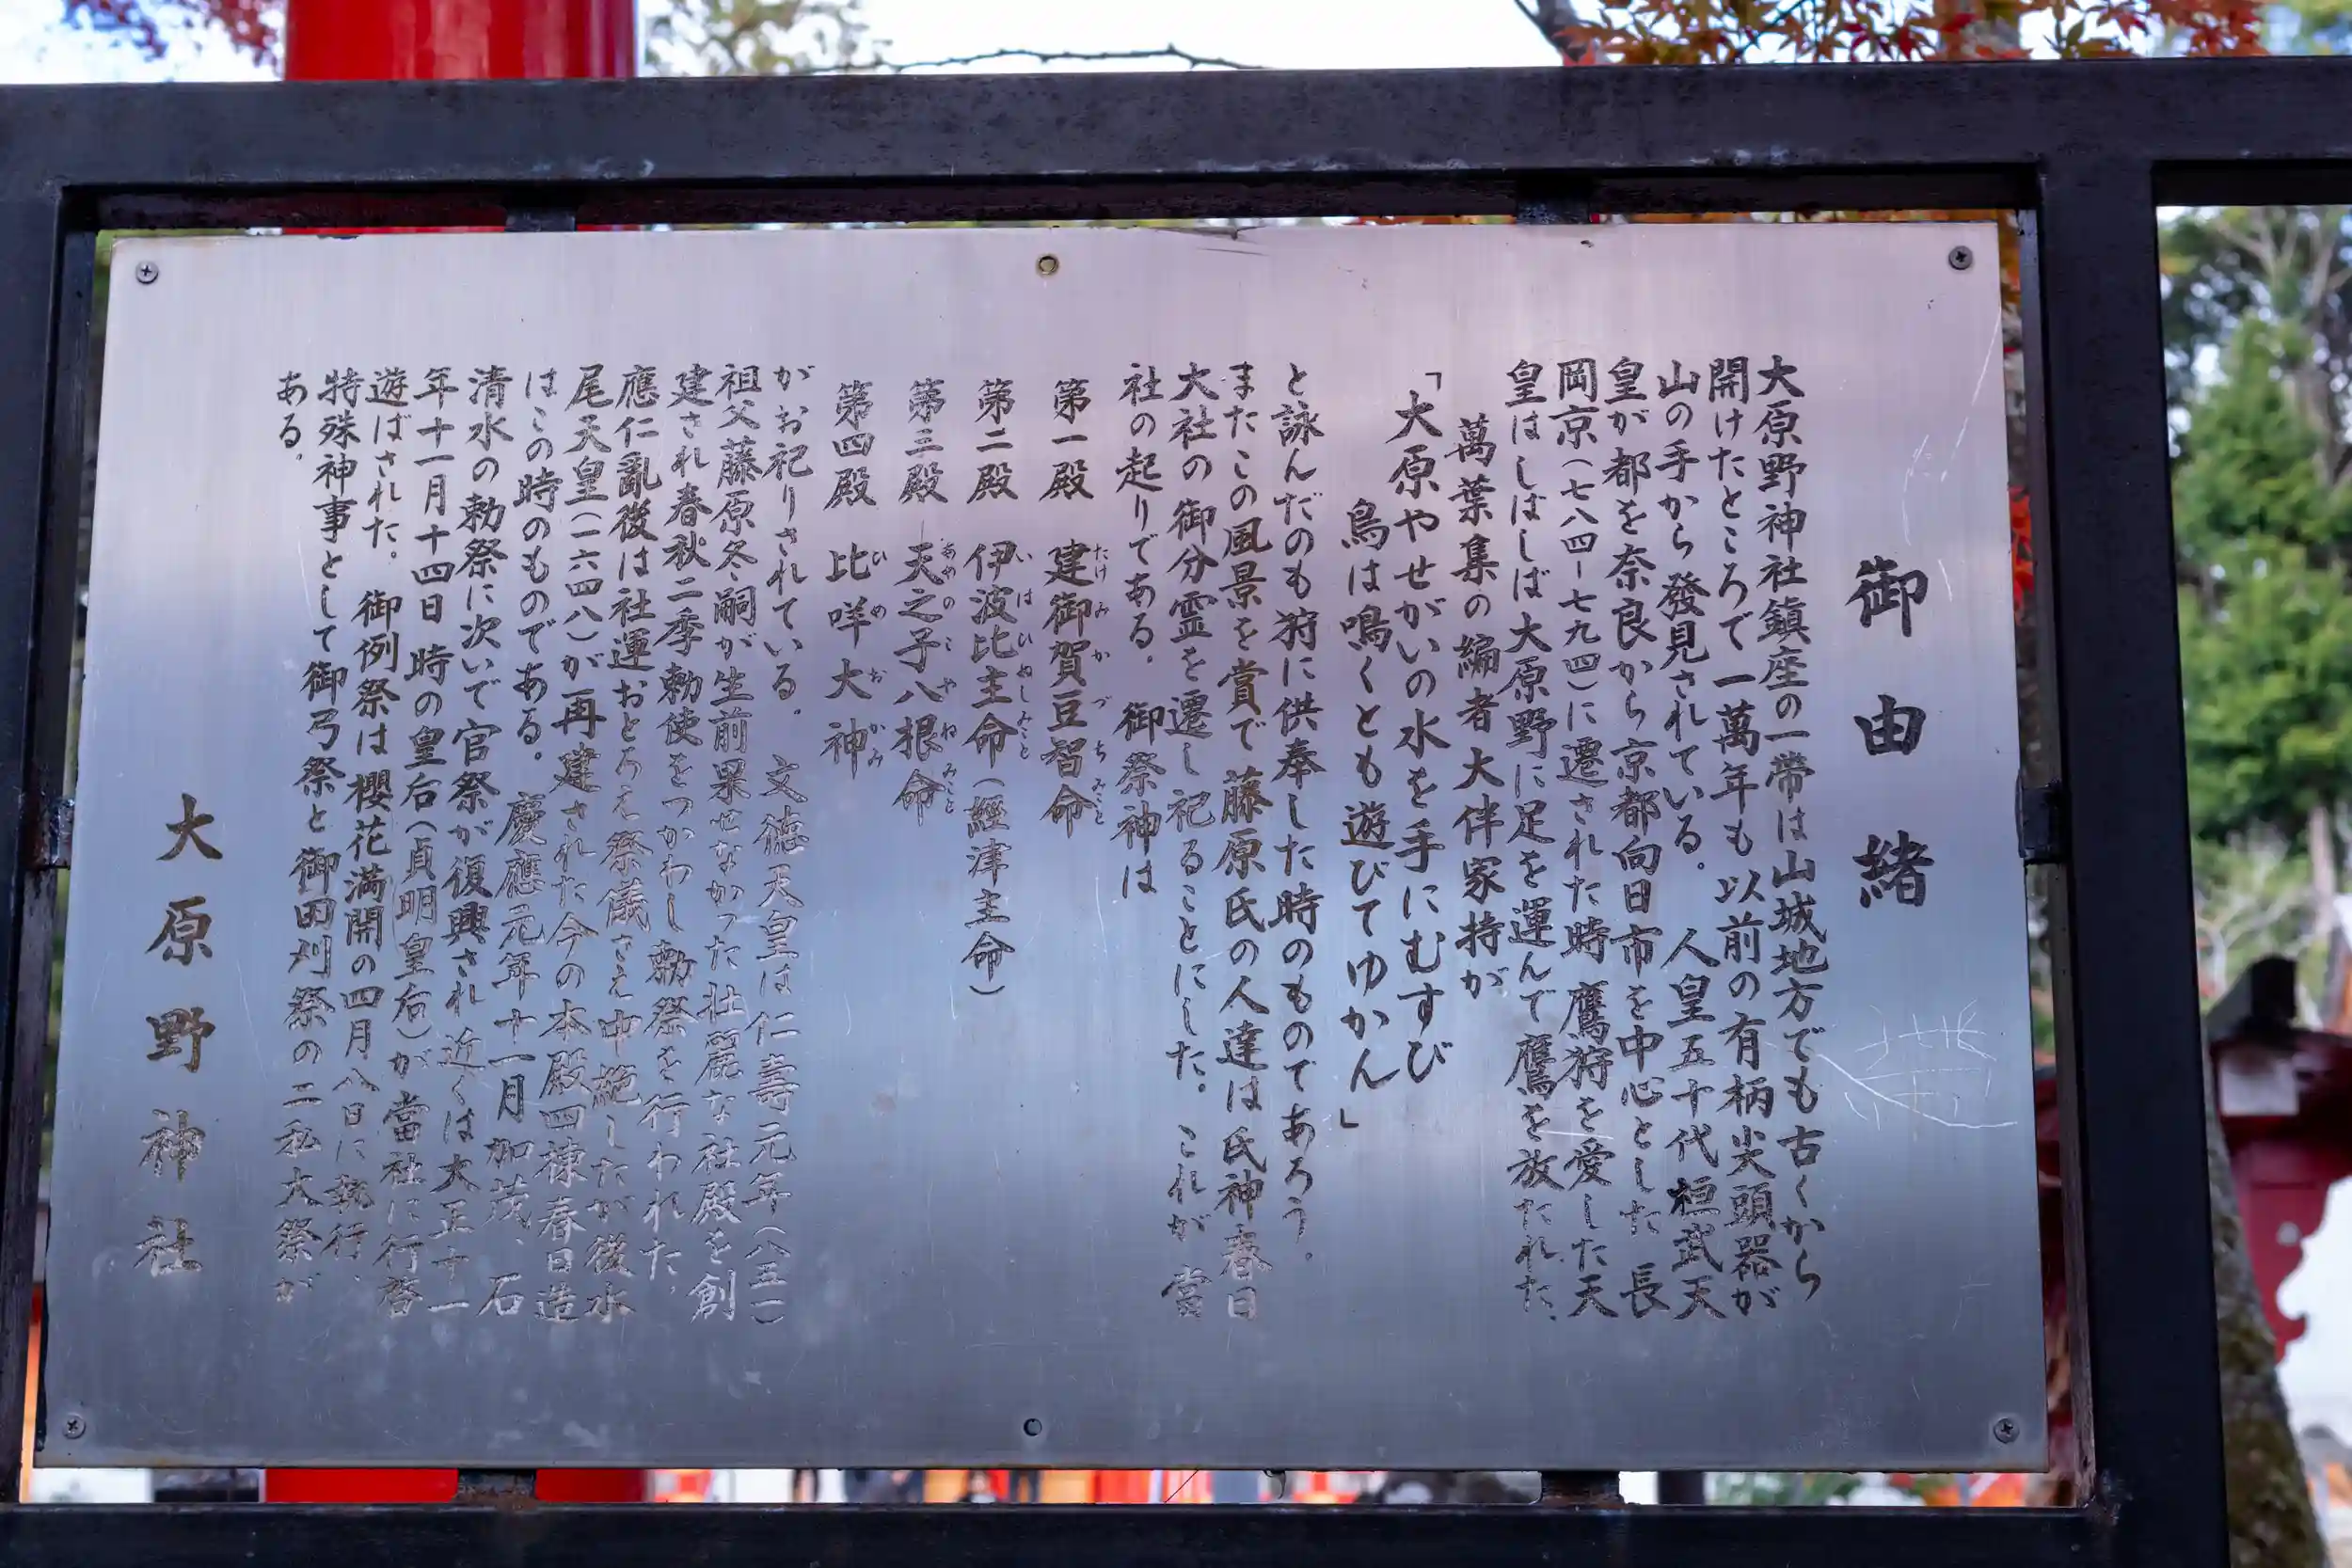 御由緒
大原野神社鎮座の一帯は山城地方でも古くから
開けたところで一萬年も以前の有柄尖頭器が
山の手から發見されている。人皇五十代桓武天
皇が都を奈良から京都向日市を中心とした長
岡京(七八四-七九四)に遷された時鷹狩を愛した天
皇はしばしば大原野に足を運んで鷹を放たれた、
萬葉集の編者大伴家持が
「大原やせがいの水を手にむすび
鳥は鳴くとも遊びてゆかん」
と詠んだのも狩に供奉した時のものであろう。
またこの風景を賞で藤原氏の人達は氏神春日
大社の御分霊を遷し祀ることにした。これが當
社の起りである。御祭神は
第一殿 建御賀豆智命
第二殿 伊波比主命(經津主命)
第三殿 天之子八根命
第四殿 比咩大神
がお祀りされている。文徳天皇は仁壽元年(八五一)
祖父藤原冬嗣が生前果せなかった壮麗な社殿を創
建され春秋二季勅使をつかわし勅祭を行われた、
應仁亂後は社運おとろえ祭儀さえ中絶したが後水
尾天皇(一六四八)が再建された今の本殿四棟春日造
はこの時のものである。慶應元年十一月加茂、石
清水の勅祭に次いで官祭が復興され近くは大正十一
年十一月十四日時の皇后(貞明皇后)が當社に行啓
遊ばされた。御例祭は櫻花満開の四月八日に執行、
特殊神事として御弓祭と御田刈祭の二私大祭が
ある。
大原野神社